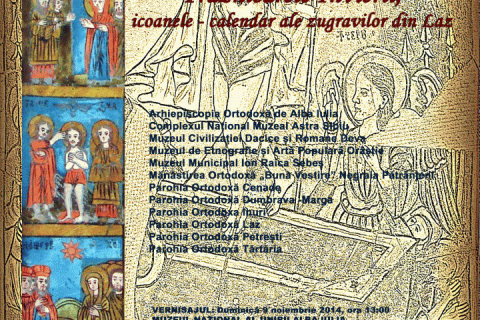 icoanele - calendar ale zugravilor din Laz
Arhiepiscopia Ortodoxă de Alba Iulia
Complexul Național Muzeal Astra Sibiu
Muzeul Civilizației Dacice și Romane Deva
Muzeul de Etnografie și Artă Populară Orăștie
Muzeul Municipal Ion Raica Sebeș
Mănăstirea Ortodoxă „Buna Vestire”
Parohia Ortodoxă Cenade
Parohia Ortodoxă Dumbrava -Marga
Parohia Ortodoxă
Parohia Ortodoxă Laz
Parohia Ortodoxă Petrești
Parohia Ortodoxă Tărtăria
VERNISAJUL: Duminică 9 noiembrie 2014, ora 13:00
MUZEUL NAȚIONAL AL UNIRII ALBA IULIA